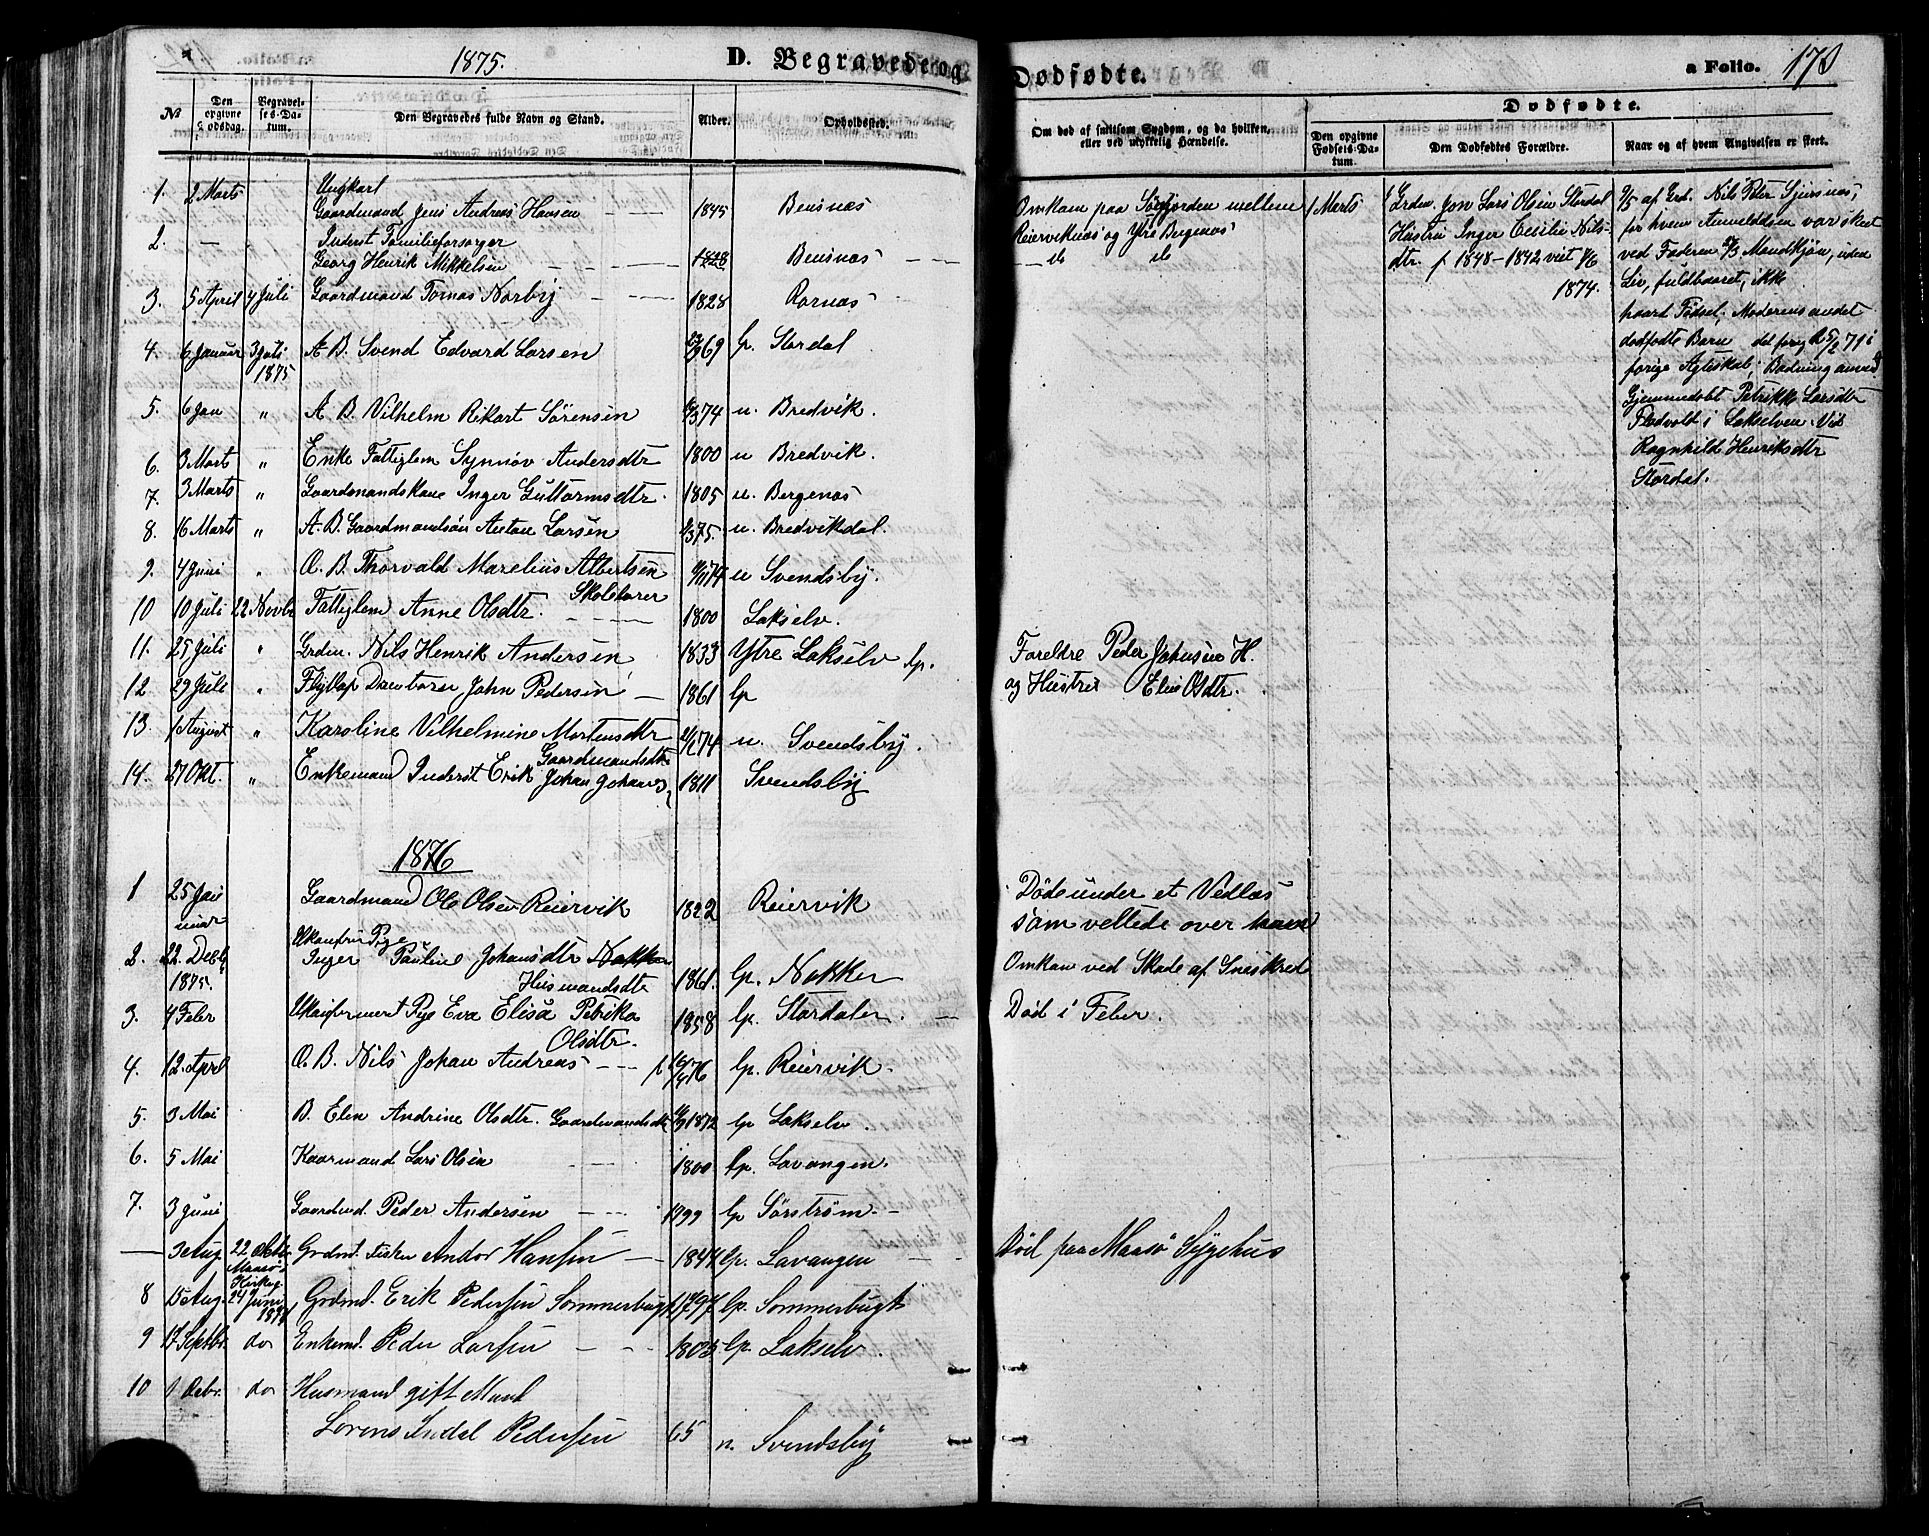 1875.
D. Begravede og
Dødfødte.
a Folio. 173
№
Den opgivne Dødsdag.
Begravelses-Datum.
Den Begravedes fulde Navn og Stand.
Alder.
Opholdssted.
Om død af smitsom Sygdom, og da hvilken, eller ved ulykkelig Hændelse.
Dødfødte.
Den opgivne Fødsels-Datum.
Den Dødfødtes Forældre.
Naar og af hvem Angivelsen er skeet.
1. 2 Marts Ungkarl
Gaardmand Jens Andreas Hansen 1845 Bensnæs
Omkom paa Sørfjorden mellem
Reierviknæs og Ytre Bergenæs
2. — Inderst Familieforsørger
Georg Henrik Mikkelsen Bensnæs
do do
3. 5 April 4 Juli Gaardmand Tomas Norby 1828 Rornæs
4. 6 Januar 3 Juli 1875 Æ. B. Svend Edvard Larsen 69 lp. Stordal
5. 6 Jan " Æ. B. Vilhelm Rikart Sørensen 74 n. Bredvik.
6. 3 Marts " Enke Fattiglem Synnøv Andersdtr 1800 n Bredvik.
7. 3 Marts " Gaardmandskone Inger Guttormsdtr. 1805 n. Bergenæs
8. 16 Marts " Æ. B. Gaardmandsøn Anton Larsen 75. n. Bredvikdal.
9. 4 Juni " Æ. B. Thorvald Marelius Albertsen 74 n Svendsby.
Skolelærer
10 10 Juli 22 Novbr Fattiglem Anne Olsdtr. 1800 Lakselv.
11. 25 Juli " Grdm. Nils Henrik Andersen 1833 Ytre Lakselv lp.
12 29 Juli " John Pedersen — 1861 lp
Foreldre Peder Johnsen H.
og Hustru Elen Olsdtr.
13. 6 August " Karoline Vilhelmine Mortensdtr 74 n. Svendsby
Gaardmandsdtr
14. 27 Okt. " Enkemand Inderst Erik Johan Johans 1811 Svendsby
1 Marts
Grdm. Jon Lars Olsen Stordal
Hustru Inger Cecilie Nils-
dtr. f 1848 — 1842 viet 1/6
1874.
9/5 af Grd. Nils Peter Sjursnæs,
for hvem Anmeldelsen var skeet
ved Faderen 2/5 Mandkjøn, uden
Liv, fuldbaaret, ikke
haard Fødsel, Moderens andet
dødfødte Barn det forrige 25/2 71 i
forige Ægteskab,
Petrikke Larsdtr
Flodvold i Lakselven. Vid
Ragnhild Henriksdtr
Stordal.
1876
1 25 Januar Gaardmand Ole Olsen Reiervik 1822 Reiervik
Døde under et Vedlæs
som veltede over ham
2. 22. Decbr 1875. Ukonfrm Pige
Inger Pauline Johansdtr Nakken
Husmandsdtr 1861. lp. Nakken
Omkom ved Skade af Sneskred
3. 4 Feber Ukonfirmert Pige Eva Elisa Petrika
Olsdtr. 1858 lp. Stordalen.
Død i Feber.
4. 12. April Æ. B. Nils Johan Andreas f 76 lp. Reiervik.
5. 3 Mai B. Elen Andrine Olsdtr. Gaardmandsdtr 1872 lp Lakselv.
6. 5 Mai Kaarmand Lars Olsen 1800 lp. Lavangen.
7. 3 Juni Gaardmd. Peder Andersen 1799 lp Sørstrøm.
— 3 Aug. 22 Oktbr Maasø Kirkeg. Grdmd. Fisker Andor Hansen — 1844 lp. Lavangen
Død paa Maasø Sygehus
8 15 Aug. 24 Juni Grdmd. Erik Pedersen Sommerbugt 1797 lp. Sommerbugt
9 17 Septbr. do Enkemd. Peder Larsen 1805 lp. Lakselv.
10 1 Decbr. do Husmand gift Mand
Lorens Indal Pedersen 65 n. Svendsby